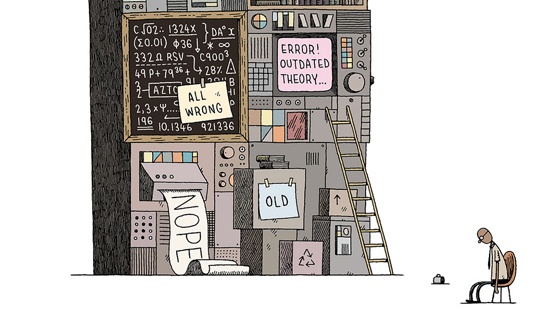 C√02:. 1324X
(Σ0.01) Φ36
DA°X
* ∞
332 Ω RSV
C900³
49 P+ 79³⁶
28% △
AZTC
2,3 ×Ψ....
196
10.1346 921336
ALL
WRONG
ERROR!
OUTDATED
THEORY...
NOPE
OLD